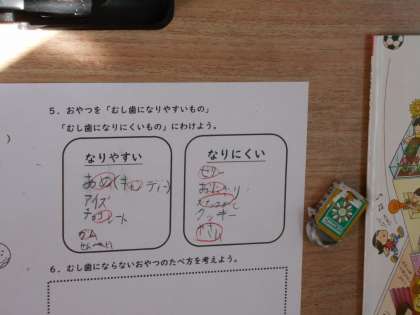 5. おやつを「むし歯になりやすいもの」
「むし歯になりにくいもの」にわけよう。
なりやすい
あめ(キャンディー)
アイス
チョコレート
ガム
せんべい
なりにくい
ゼリー
クッキー
6. むし歯にならないおやつのたべ方を考えよう。